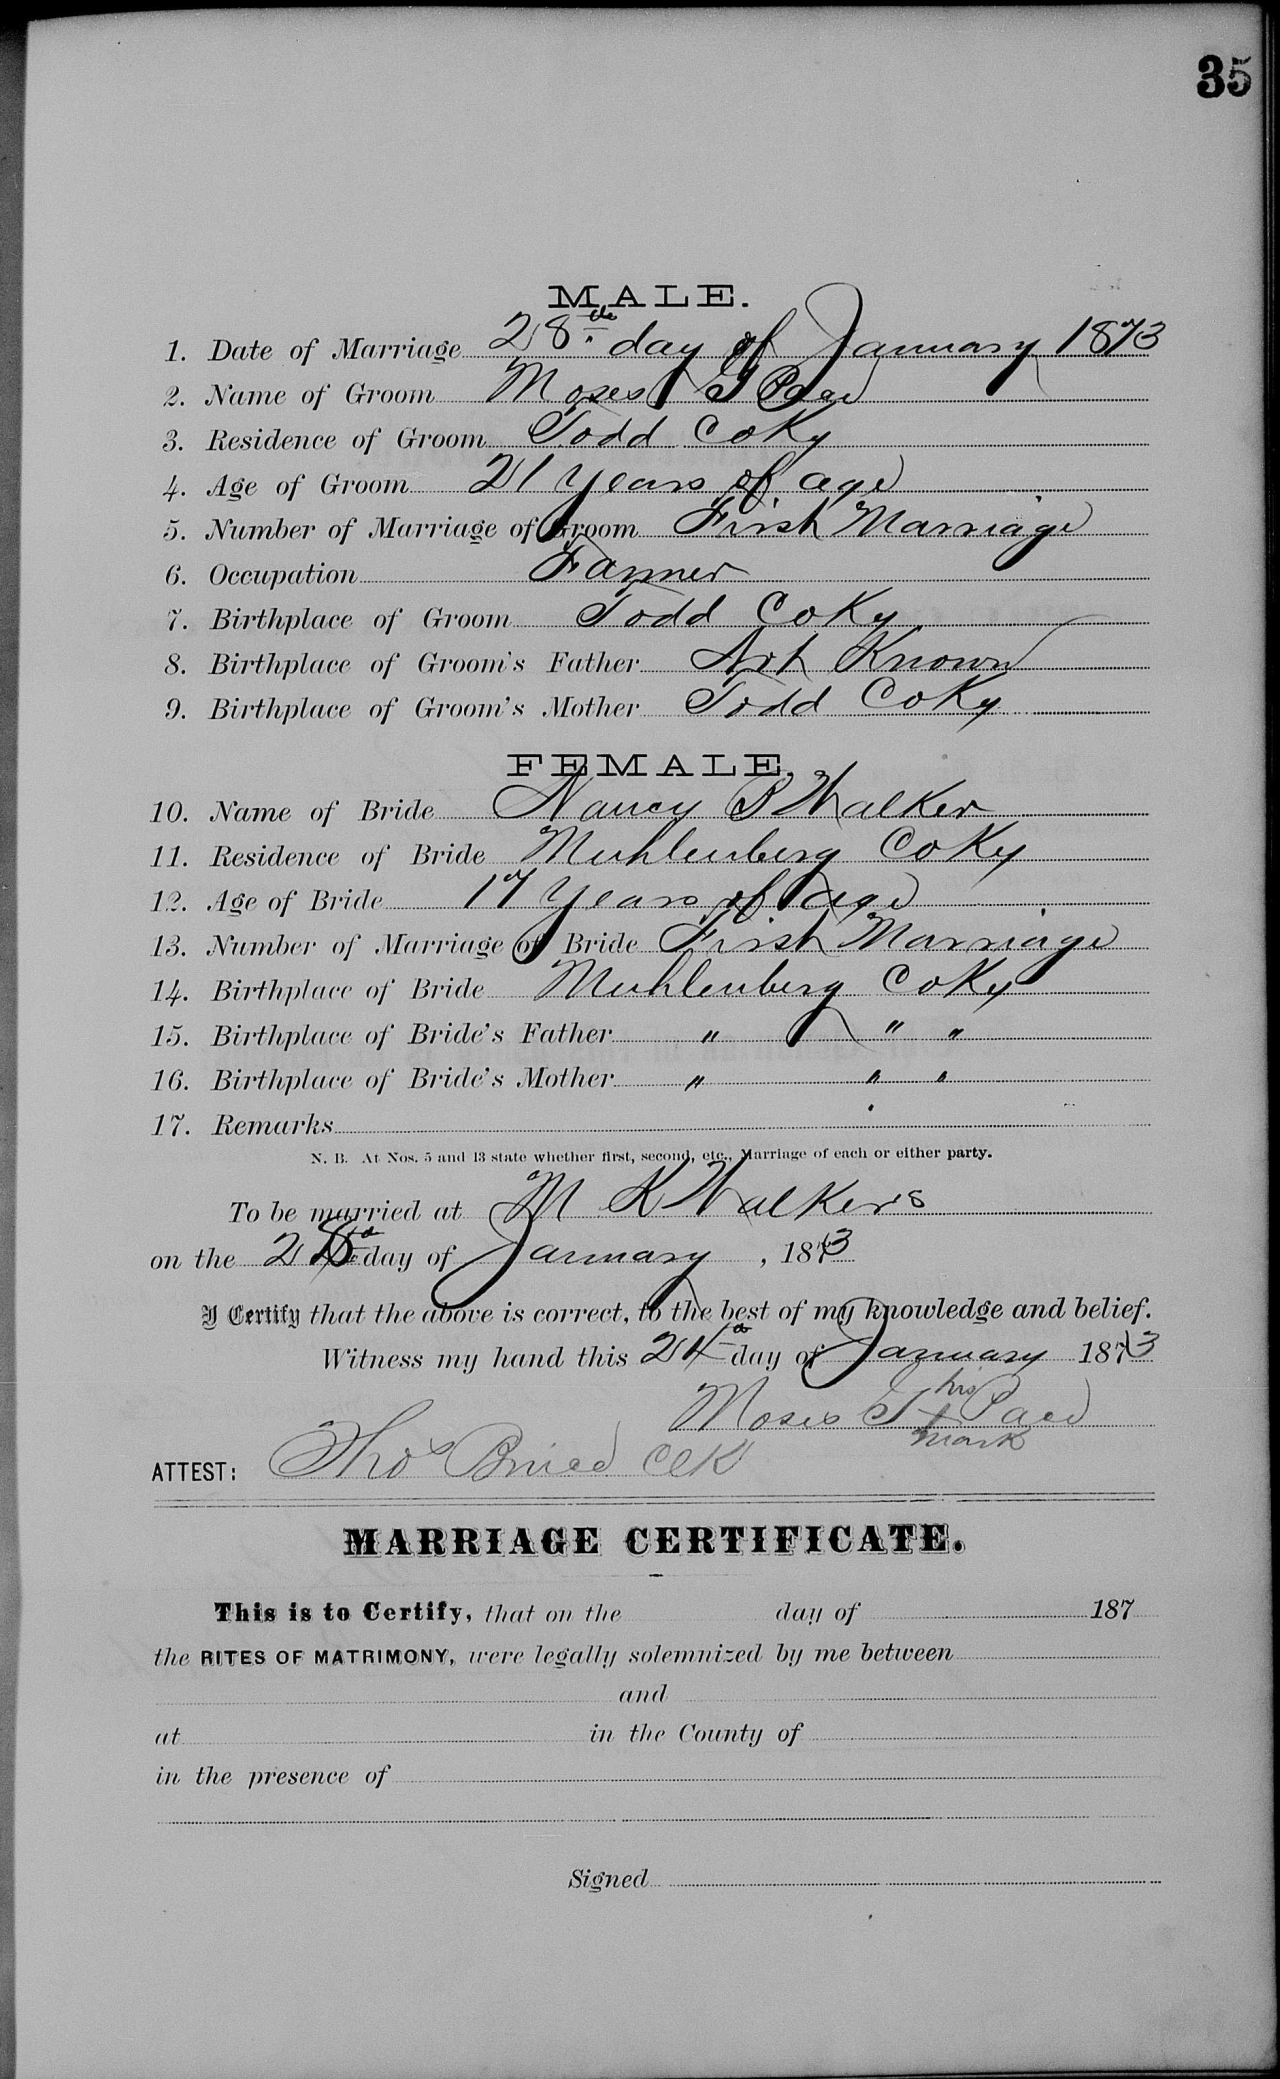 35
MALE.
1. Date of Marriage 28th day of January 1873
2. Name of Groom Moses G Pace
3. Residence of Groom Todd Co Ky
4. Age of Groom 21 Years of age
5. Number of Marriage of Groom First Marriage
6. Occupation Farmer
7. Birthplace of Groom Todd Co Ky
8. Birthplace of Groom's Father Not Known
9. Birthplace of Groom's Mother Todd Co Ky
FEMALE.
10. Name of Bride Nancy P Walker
11. Residence of Bride Muhlenberg Co Ky
12. Age of Bride 17 Years of age
13. Number of Marriage of Bride First Marriage
14. Birthplace of Bride Muhlenberg Co Ky
15. Birthplace of Bride's Father " " "
16. Birthplace of Bride's Mother " " "
17. Remarks
N. B. At Nos. 5 and 13 state whether first, second, etc., Marriage of each or either party.
To be married at M K Walker's
on the 28th day of January, 1873
I Certify that the above is correct, to the best of my knowledge and belief.
Witness my hand this day of January 1873
his
Moses G X Pace
mark
ATTEST: Thos Bruce Clk
MARRIAGE CERTIFICATE.
This is to Certify, that on the day of 187
the RITES OF MATRIMONY, were legally solemnized by me between
and
at in the County of
in the presence of
Signed